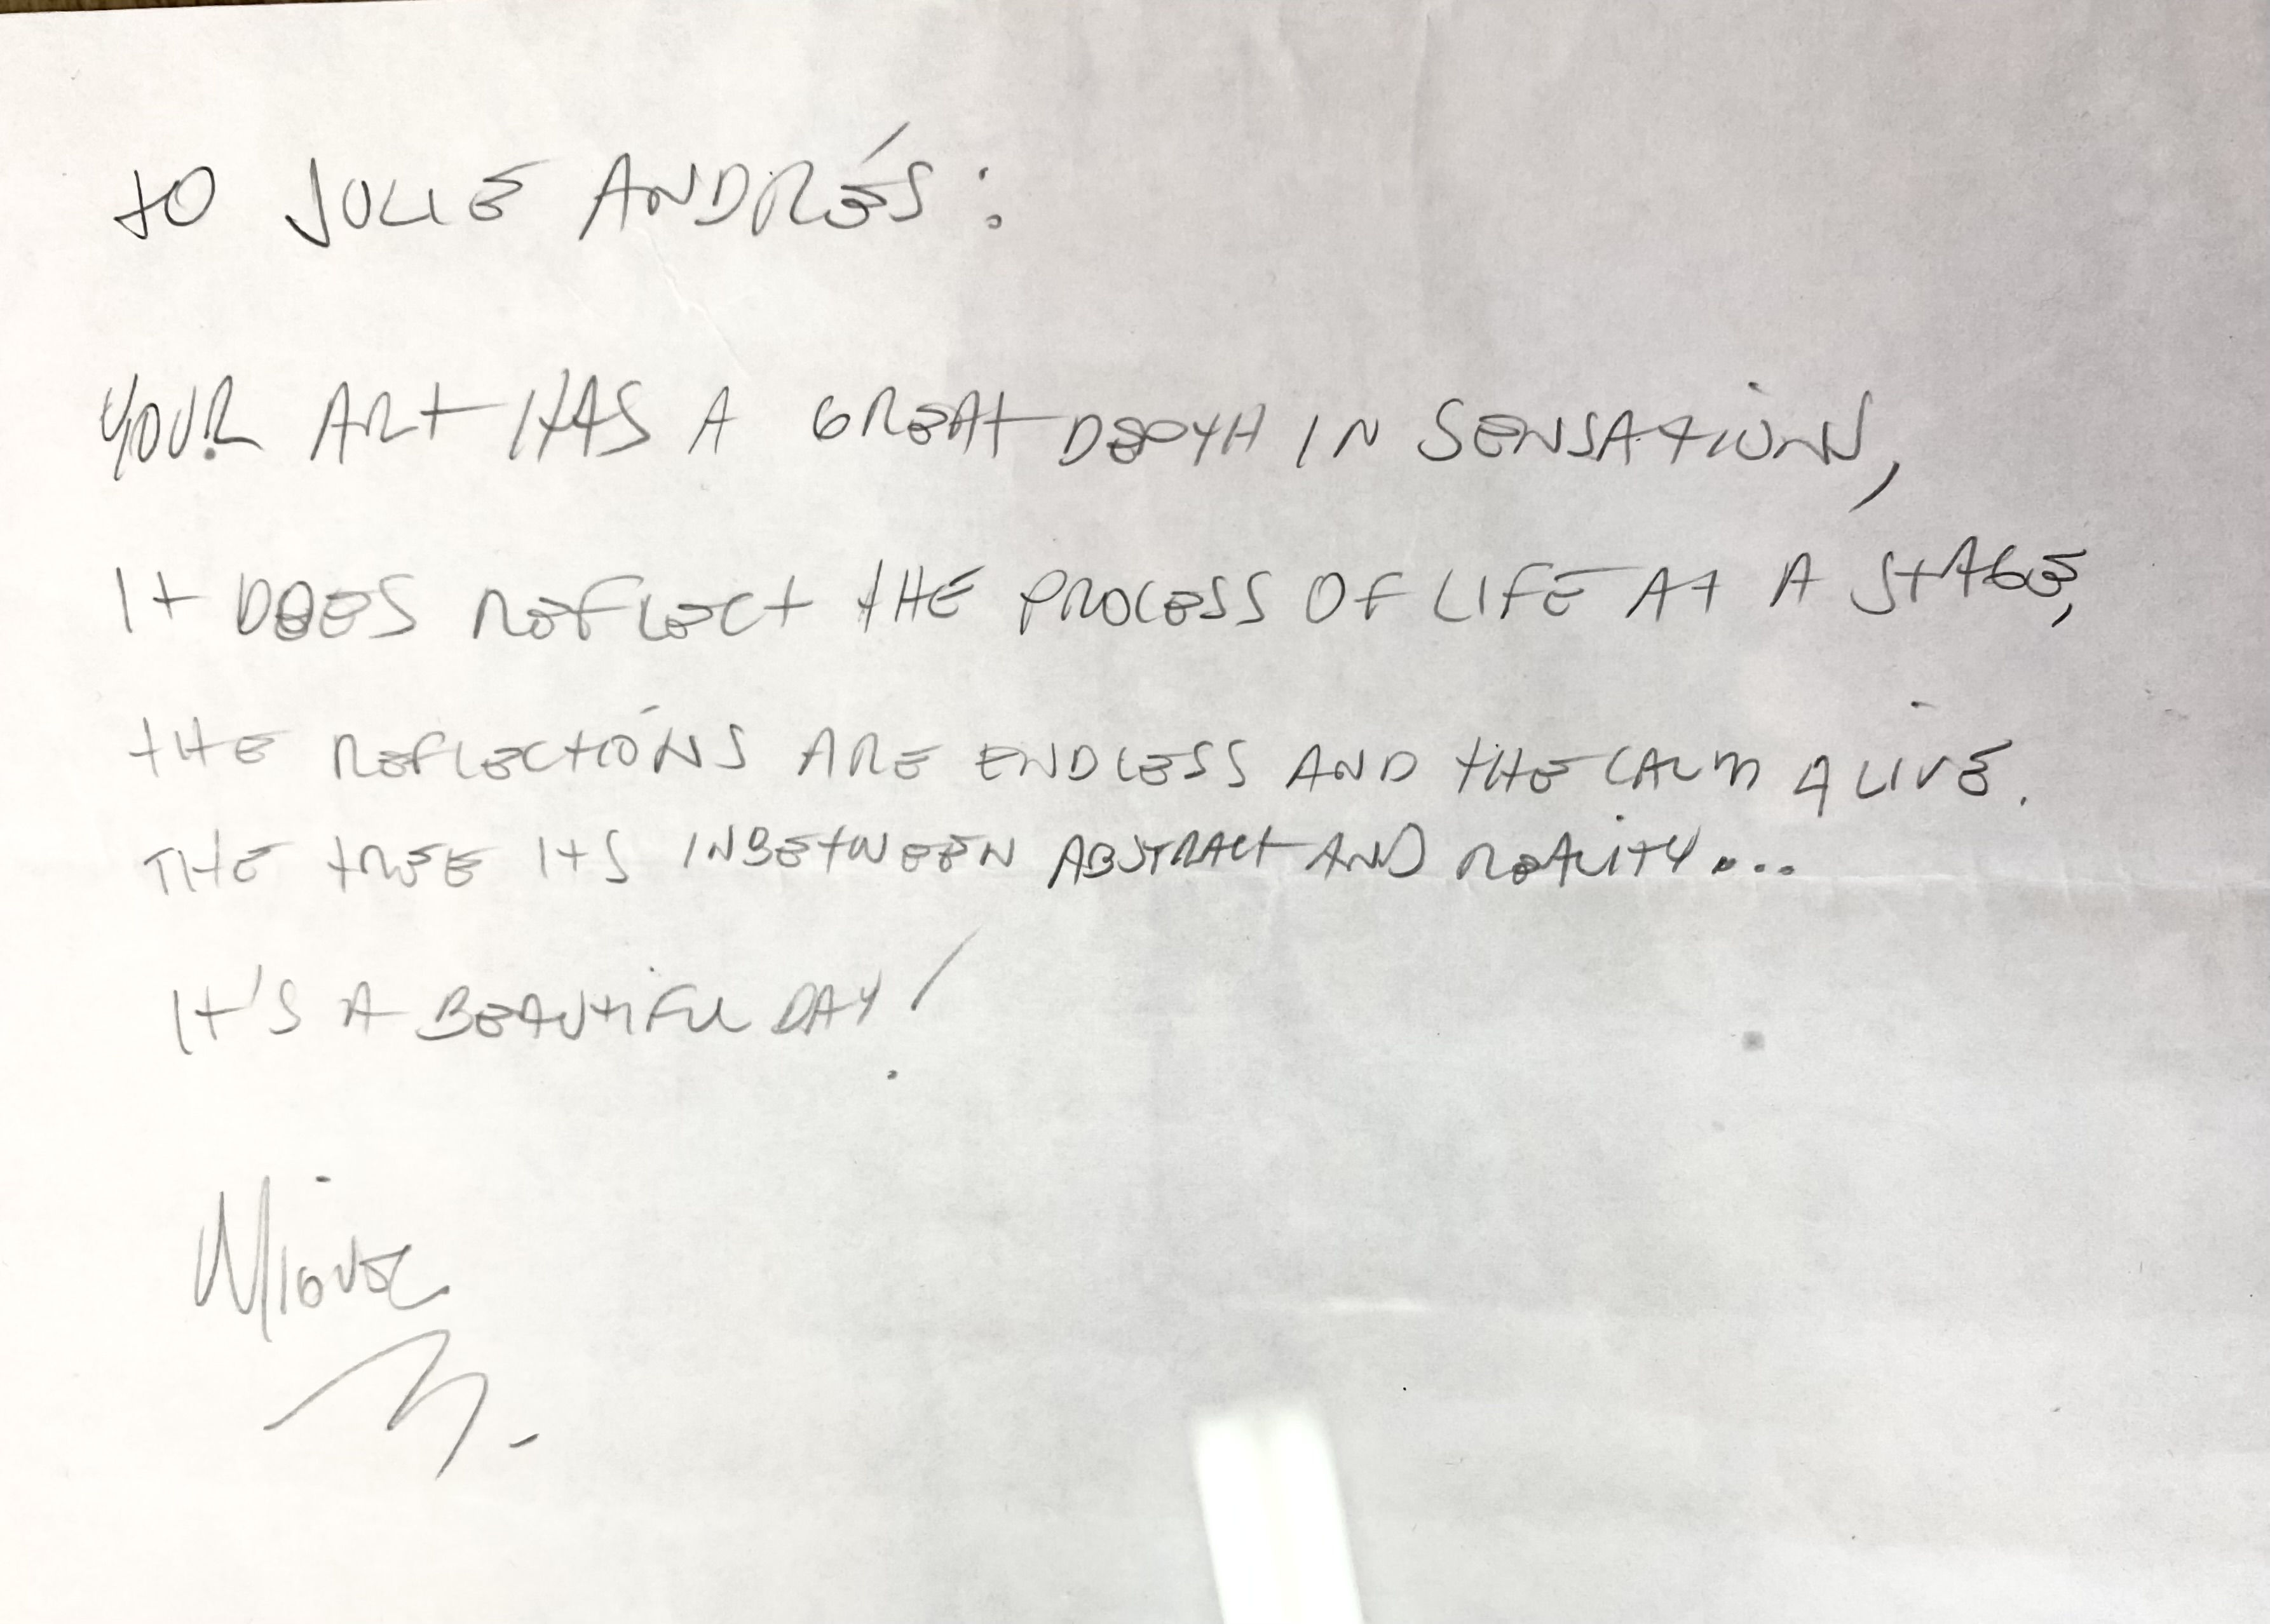 TO JULIE ANDRÉS:
YOUR ART HAS A GREAT DEPTH IN SENSATIONS,
IT DOES REFLECT THE PROCESS OF LIFE AT A STAGE,
THE REFLECTIONS ARE ENDLESS AND THE CALM ALIVE.
THE TREE ITS INBETWEEN ABSTRACT AND REALITY...
IT'S A BEAUTIFUL DAY!
MIGUEL
M.